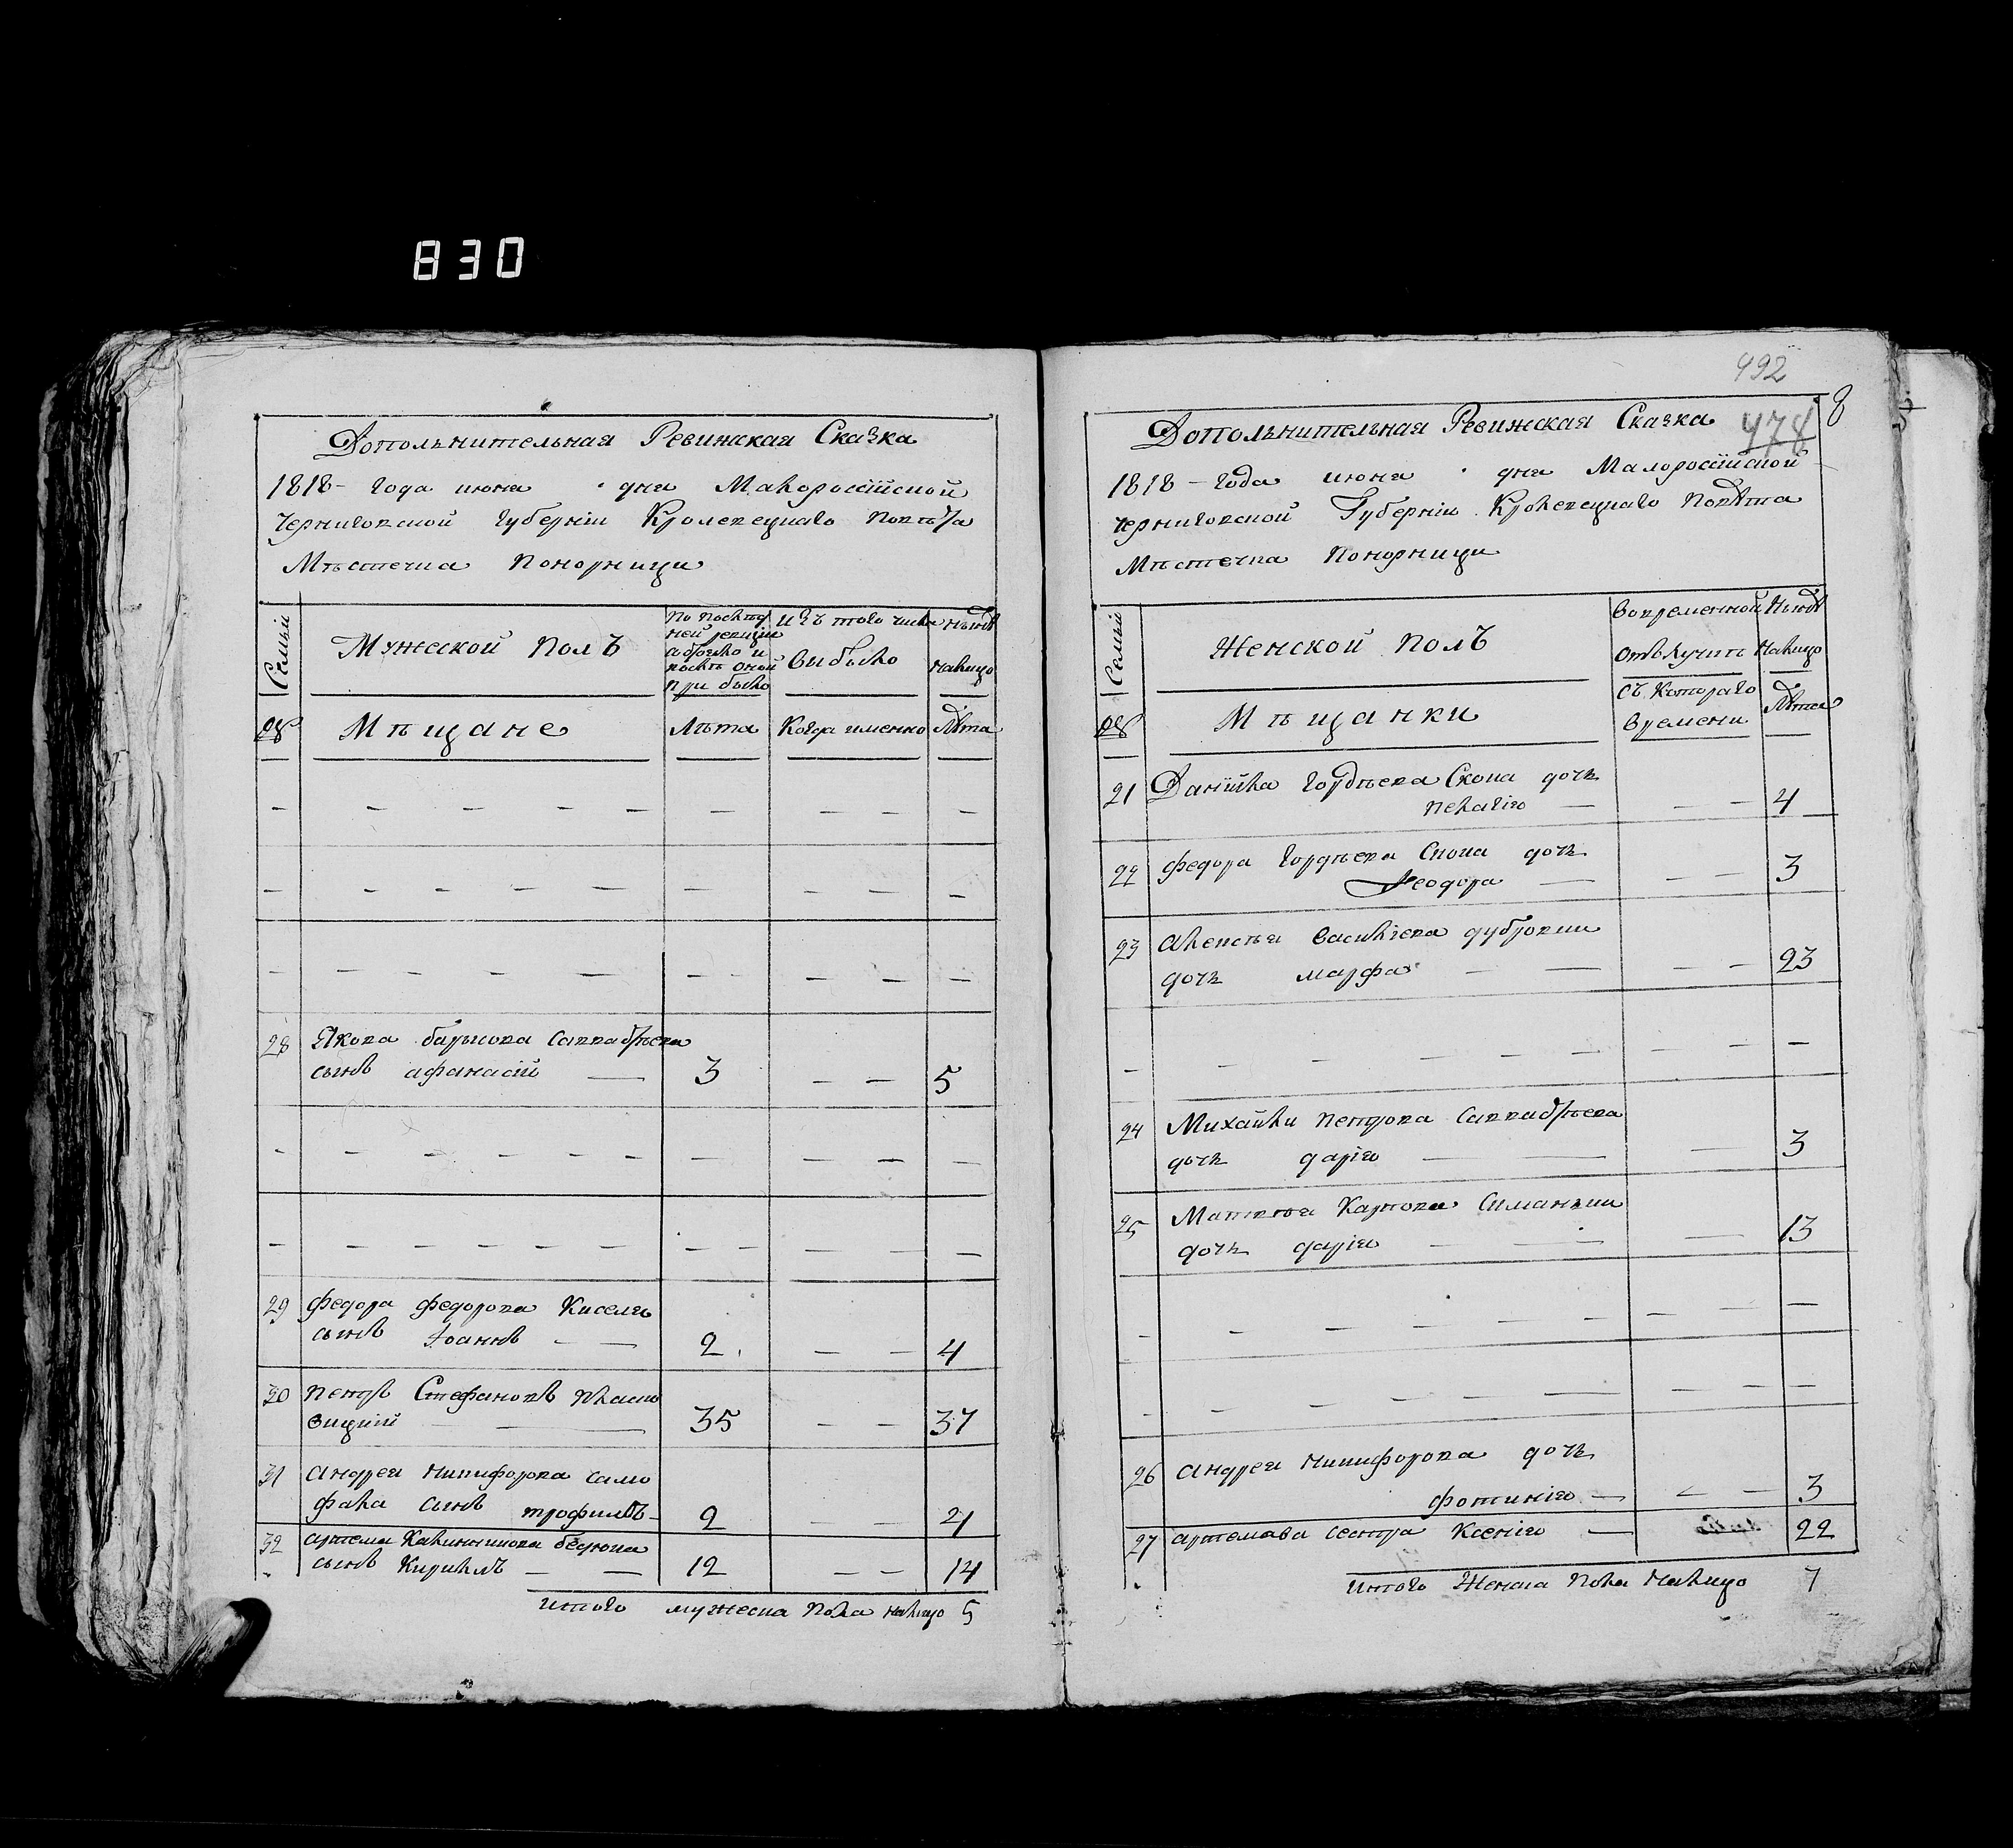 830
Дополънительная Ревижская Сказка
1818 – года июня дня Малороссійской
Черниговской Губерніи Кролевецкаго Повѣта
Мѣстечка Понорници
Семьи
Мужеской Полъ
По послѣд
ней ревизіи
состояло и
послѣ оной
при было
Изъ того числа
выбыло
Нынѣ
налицо
№
Мѣщане
Лѣта
Когда именно
Лѣта
28 Якова Савватѣева
сынъ афанасій — 3 — — 5
29 Федора Федорова Киселя
сынъ Іоаннъ — — 2 — — 4
30 Петръ Стефановъ
35 — — 37
31 Андрея Никифорова само
фала сынъ трофимъ – 2 — —
32 Артема
сынъ Кирилъ — — 12 — — 14
Итого мужеска пола налицо 5
492
478
8
Дополънительная Ревижская Сказка
1818 – года июня дня Малороссійской
Черниговской Губерніи Кролевецкаго Повѣта
Мѣстечка Понорници
Семьи
Женской Полъ
Вовременной
отълучкѣ
Нынѣ
Налицо
№
Мѣщанки
Съ котораго
времени
Лѣта
21 Данійла Гордѣева Скопа дочь
Пелагія — — — 4
22 Федора Гордѣева Скопа дочь
Феодора — — — 3
23 Алексѣя Василіева дубровки
дочь марфа — — — — 23
24 Михайли Петрова Савватѣева
дочь дарія — — — 3
25 Матвѣя Карпова
дочь дарія — — — 13
26 Андрея Никифорова дочь
фотинія — — — 3
27 Артемова сестра Ксенія — 22
Итого Женска Пола Налицо 7